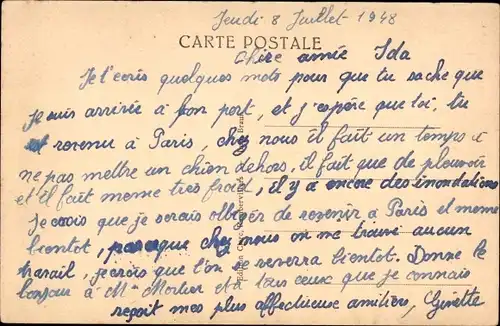 Jeudi 8 Juillet 1948
CARTE POSTALE
Chère amie Ida
Je t'écris quelques mots pour que tu sache que
je suis arrivée à bon port, et j'espère que toi, tu
est revenu à Paris, chez nous il fait un temps à
ne pas mettre un chien dehors, il fait que de pleuvoir
et il fait mome très froid, il y a encore des inondations
Je crois que je serais obliger de revenir à Paris et mome
bientot, parceque chez nous on ne trouve aucun
travail, je crois que l'on se reverra bientot. Donne le
bonjour à Mme Morlier et à tous ceux que je connais
reçoit mes plus affectueuse amitiers, Ginette